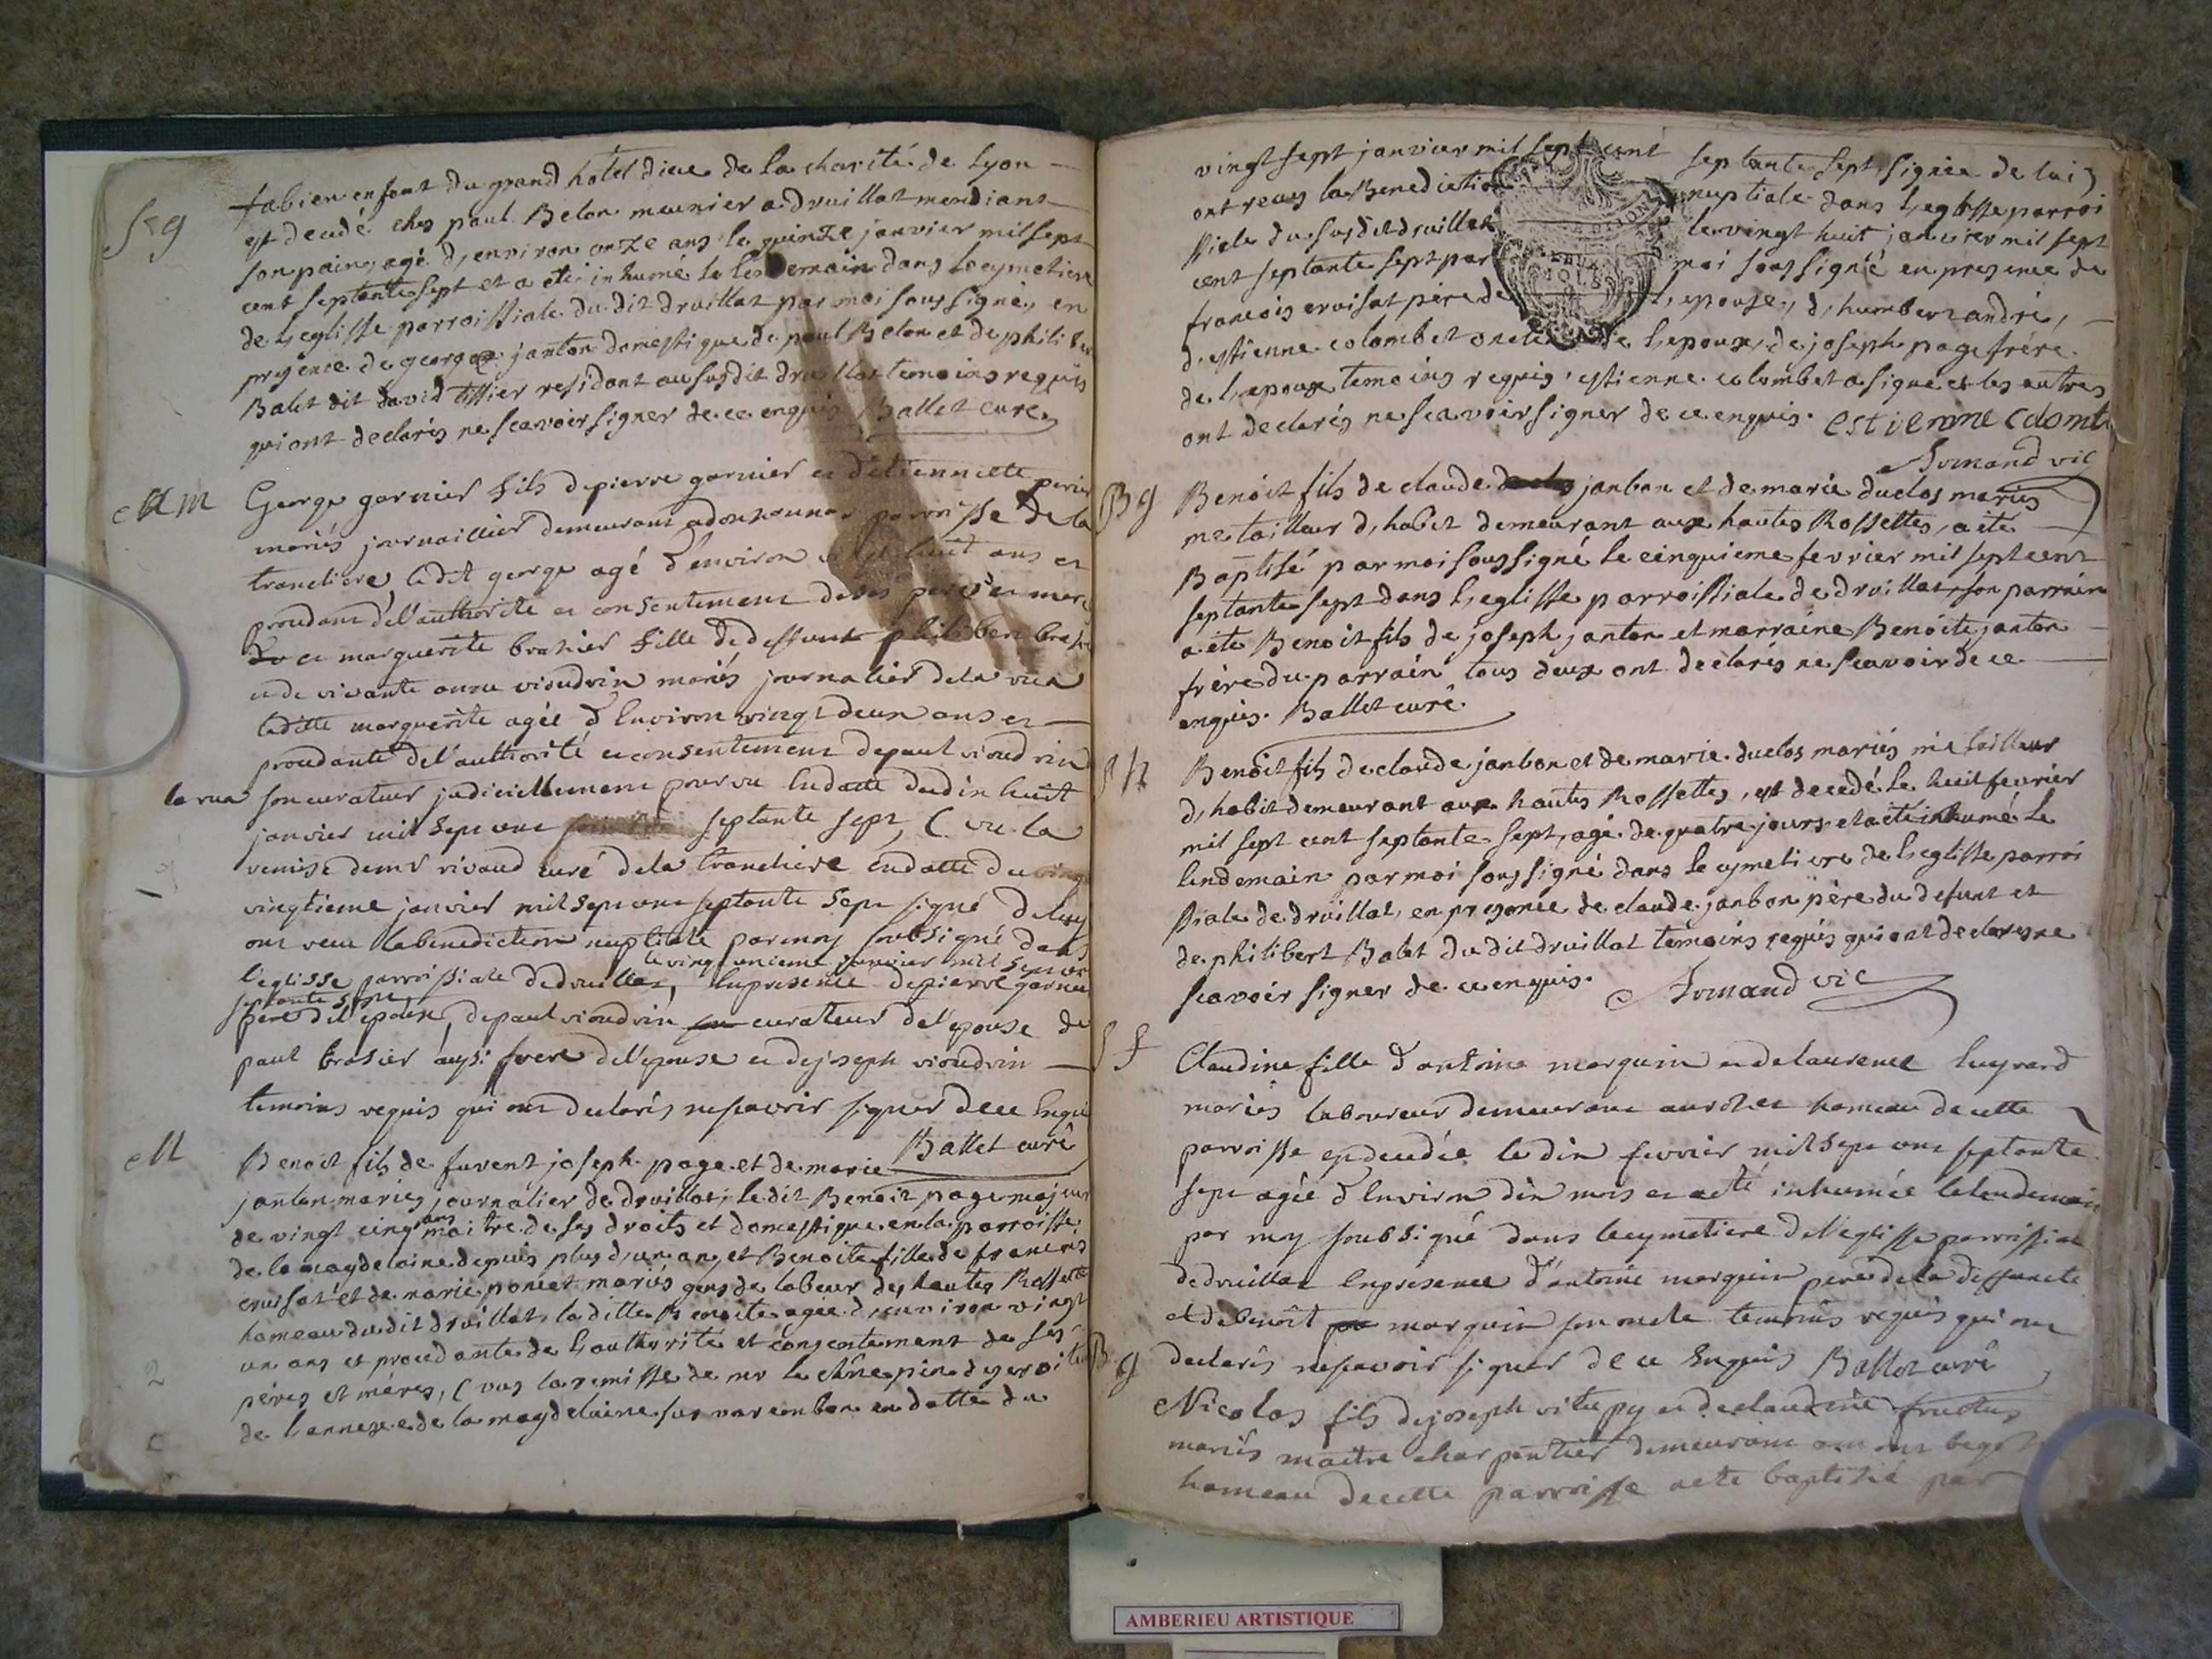 Sg
fabien enfant du grand hotel dieu de la charité de Lyon
est decedé ches paul Belon meunier a druillat mendiant
son pain, agé d,environ onze ans le quinze janvier mil sept
cent septante sept et a eté inhumé le lendemain dans le cymetiere
de l,eglisse parroissiale du dit druillat par moi soussigné, en
presence de george janton domestique de paul Belon et de philiber
Balet dit david tissier residant au susdit druillat temoins requis
qui ont declarés ne scavoir signer de ce enquis Ballet curé
M m
George garnier fils de pierre garnier et d'etiennette perier
mariés journaillier demeurant a parroisse de la
tranclière, ledit george agé d'environ huit ans et
procedant de l'authorité et consentement de ses pere et mere
et marguerite brasier fille de deffunt philibert brasier
et de vivante vioudrin mariés journalier de la rua
laditte marguerite agée d'environ vingt deux ans et
procedante de l'authorité et consentement de paul vioudrin
la rua son curateur judiciellement pourvu en datte du dix huit
janvier mil sept cent septante sept, (vu la
remise de mr rivaud curé de la tranclière en datte du
vingtieme janvier mil sept cent septante sept signé de luy
ont recu la benediction nuptiale par moy soubsigné dans
le vingt unieme janvier mil sept cent
l'eglisse parroissiale de druillat, en presence de pierre garnier
septante sept
pere de l'epoux, de paul vioudrin curateur de l'epouse de
paul brasier aussi frere de l'epouse et de joseph vioudrin
temoins requis qui ont declarés ne scavoir signer de ce enquis
Ballet curé
M
Benoit fils de furent joseph page et de marie
janton mariés journalier de druillat, le dit Benoit page majeur
de vingt cinq ans maitre de ses droits et domestique en la parroisse
de la magdelaine depuis plus d,un an, et Benoite fille de francois
cruisat et de marie poncet mariés gens de labeur des hautes Rossettes
hameau du dit druillat, la ditte Benoite agée d,environ vingt
un ans et procedante de l,authorité et consentement de ses
péres et méres, (vus la remisse de mr le chapin desservi
de l,annexe de la magdelaine sur varambon en datte du
vingt sept janvier mil sept cent septante sept, signée de lui)
ont recus la Benediction nuptiale dans l,eglisse parroi
ssiale du susdit druillat le vingt huit janvier mil sept
cent septante sept par moi soussigné en presence de
francois cruisat père de l,epouse, d,humbert andré,
d,estienne colombet oncle de l,epoux, de joseph page frére
de l,epoux temoins requis, estienne colombet a signé et les autres
ont declarés ne scavoir signer de ce enquis. estienne colombet
Armand vic
B g
Benoit fils de claude janbon et de marie duclos mariés
me tailleur d,habit demeurant aux hautes Rossettes, a eté
Baptisé par moi soussigné le cinquieme fevrier mil sept cent
septante sept dans l,eglisse parroissiale de druillat, son parrain
a eté Benoit fils de joseph janton et marraine Benoite janton
frère du parrain tous deux ont declarés ne scavoir de ce
enquis. Ballet curé.
Benoit fils de claude janbon et de marie duclos mariés me tailleur
d,habit demeurant aux hautes Rossettes, est decedé le huit fevrier
mil sept cent septante sept, agé de quatre jours et a eté inhumé le
lendemain par moi soussigné dans le cymetiere de l,eglisse parroi
ssiale de druillat, en presence de claude janbon père du defunt et
de philibert Balet du dit druillat temoins requis qui ont declarés ne
scavoir signer de ce enquis. Armand vic
S f
Claudine fille d'antoine marguin et de laurence luyrard
mariés laboureur demeurant hameau de cette
parroisse est decedée le dix fevrier mil sept cent septante
sept agée d'environ dix mois et a eté inhumée le lendemain
par moy soubsigné dans le cymetiere de l'eglisse parroissiale
de druillat en presence d'antoine marguin pere de la deffuncte
et de benoit marguin son oncle temoins requis qui ont
declarés ne scavoir signer de ce enquis Ballet curé
B g
Nicolas fils de joseph vitupy et de claudine fructus
mariés maitre charpentier demeurant
hameau de cette parroisse a eté baptisé par
AMBERIEU ARTISTIQUE